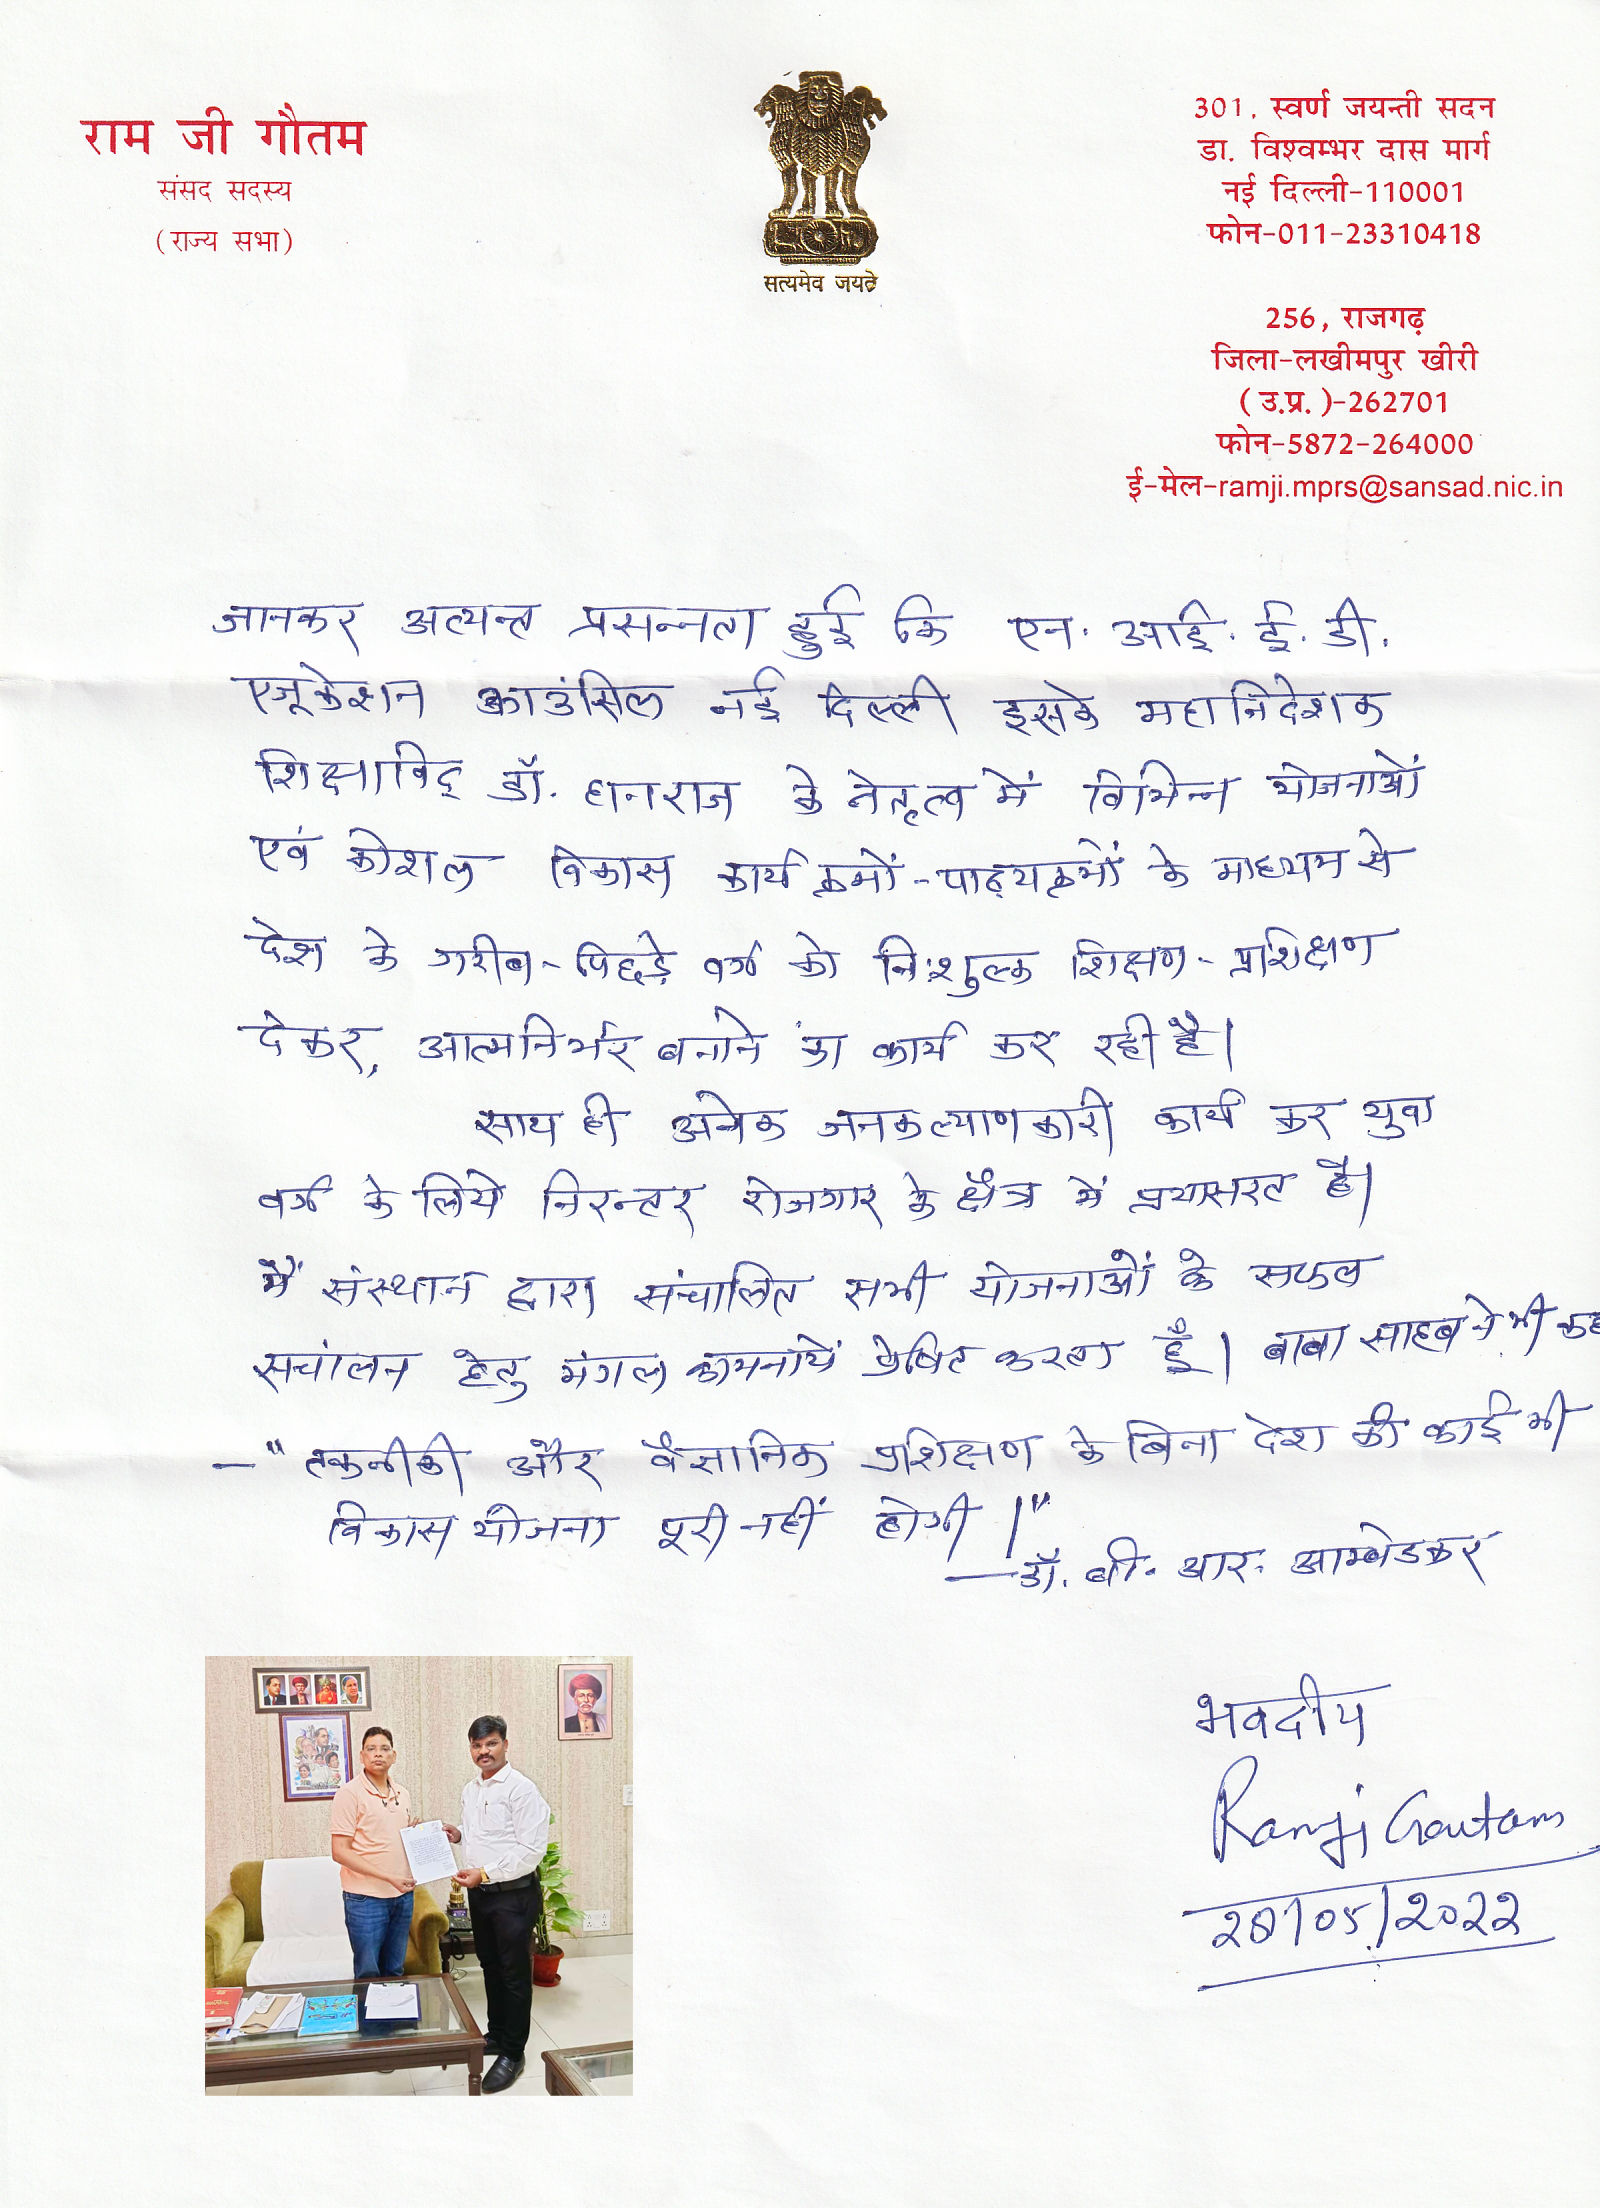 राम जी गौतम
संसद सदस्य
(राज्य सभा)
सत्यमेव जयते
301, स्वर्ण जयन्ती सदन
डा. विश्वम्भर दास मार्ग
नई दिल्ली-110001
फोन-011-23310418
256, राजगढ़
जिला-लखीमपुर खीरी
(उ.प्र.)-262701
फोन-5872-264000
ई-मेल-ramji.mprs@sansad.nic.in
जानकर अत्यन्त प्रसन्नता हुई कि एन. आई. ई. डी.
एजूकेशन काउंसिल नई दिल्ली इसके महानिदेशक
शिक्षाविद् डॉ. हानराज के नेतृत्व में विभिन्न योजनाओं
एवं कौशल विकास कार्यक्रमों-पाठ्यक्रमों के माध्यम से
देश के गरीब-पिछड़े वर्ग को निःशुल्क शिक्षण-प्रशिक्षण
देकर, आत्मनिर्भर बनाने का कार्य कर रही है।
साथ ही अनेक जनकल्याणकारी कार्य कर युवा
वर्ग के लिये निरन्तर रोजगार के क्षेत्र में प्रयासरत है।
मैं संस्थान द्वारा संचालित सभी योजनाओं के सफल
सचांलन हेतु मंगल कामनायें प्रेषित करता हूँ। बाबा साहब ने भी कहा
-"तकनीकी और वैज्ञानिक प्रशिक्षण के बिना देश की कोई भी
विकास योजना पूरी नहीं होगी।"
—डॉ. बी. आर. आम्बेडकर
भवदीय
Ramji Gautam
/05/2022